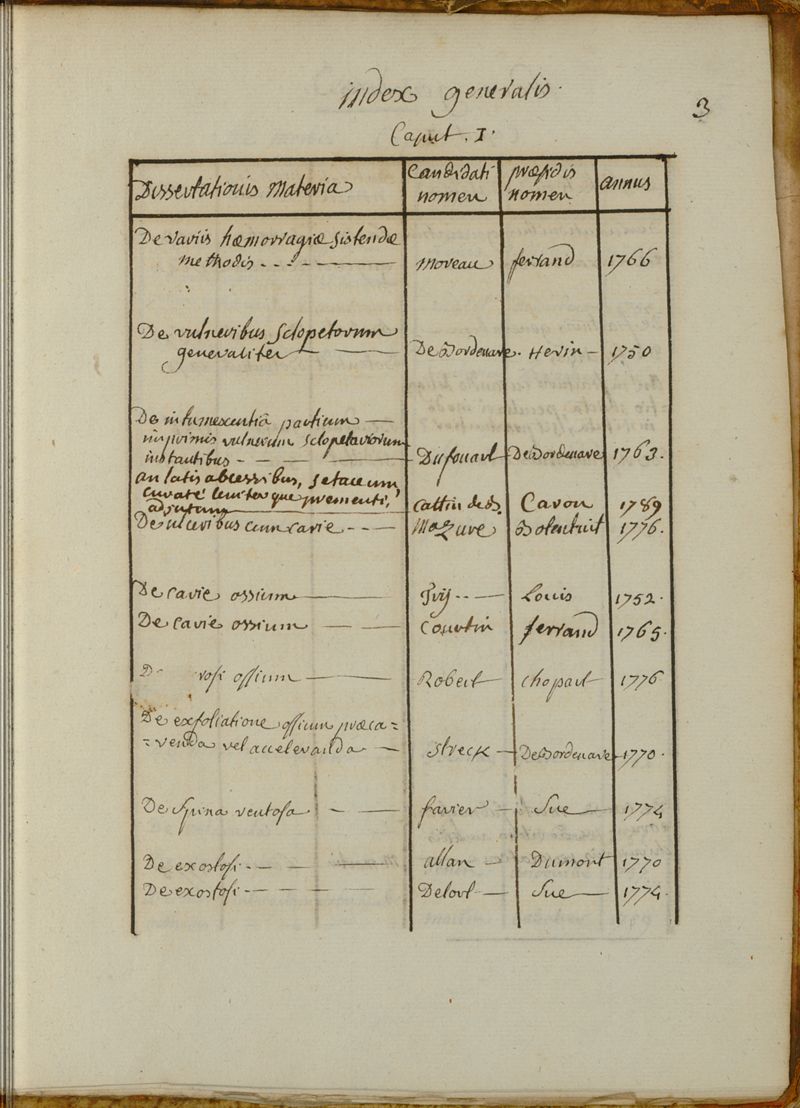 index generalis.
3
Caput. I.
Dissertationis materia Candidati nomen præsidis nomen annus
De variis hæmorragiæ sistendæ
methodis - - - moreau ferrand 1766
De vulneribus sclopetorum
generaliter De Bordenave. Hevin - 1750
De intumescentiâ partium
inprimis vulnerum sclopetariorum
instantibus - - - Dufouart DeBordenave 1763.
an latis abcessibus, setaceum
curate leniter que prementi,
adjutum Cattin de Caron 1789
De ulceribus cum carie - - - Mazure Botentuit 1776.
De carie ossium Louis 1752.
De carie ossium Courtin ferrand 1765.
De ossium Robert chopart 1776
De exfoliatione ossium præca=
=venda vel acceleranda streck DeBordenave 1770.
De Spina ventosa favier Sue 1774
De exostosi - - - allan Dumont 1770
De exostosi - - - Delort Sue 1774.